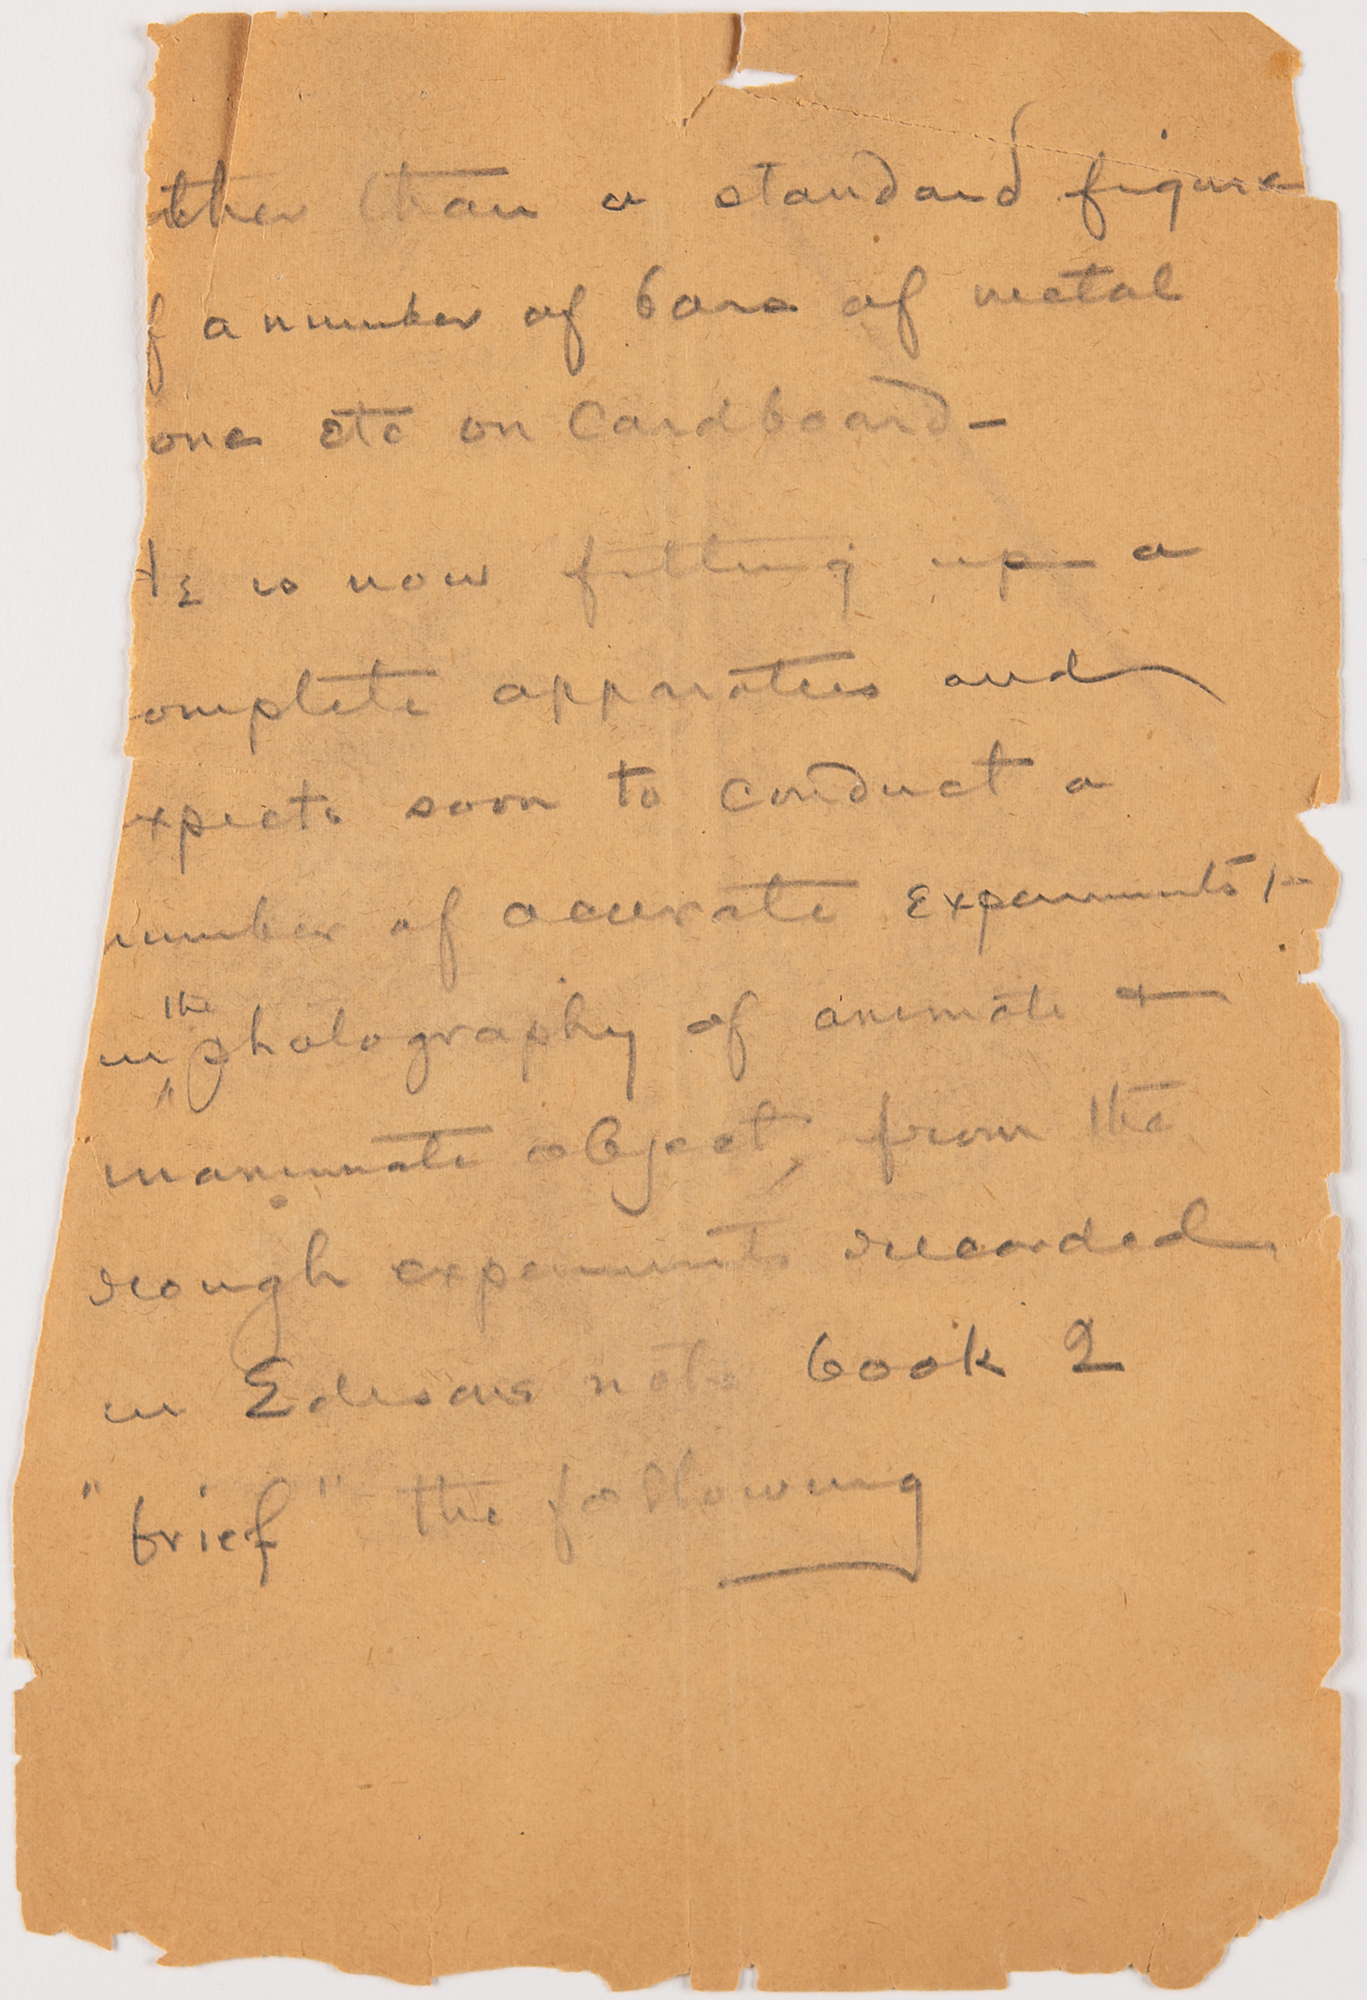 ther than a standard figure
f a number of bars of metal
one etc on Cardboard—
He is now fitting up a
omplete apparatus and
xpects soon to conduct a
number of accurate experiments
the
in photography of animate &
inanimate object, from the
rough experiments recorded
in Edisons note book 2
"brief" the following